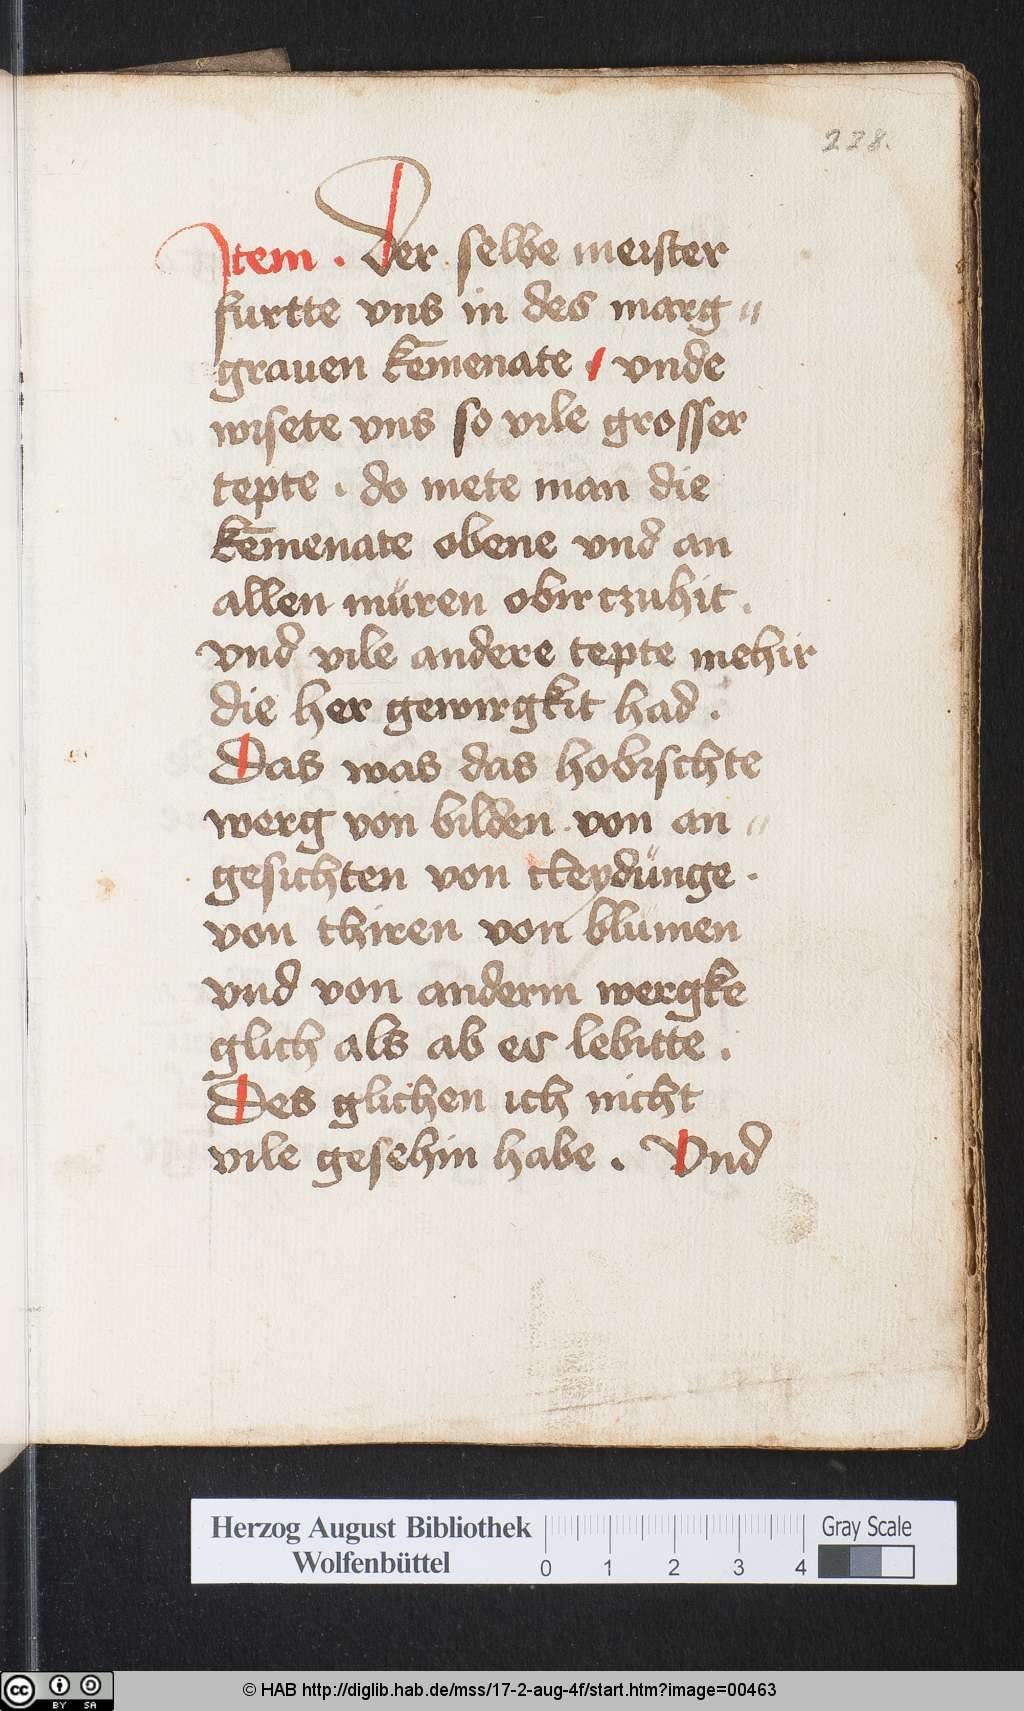 228.
Item . Der selbe meister
furtte vns in des marg〃
grauen kēmenate . vnde
wisete vns so vile grosser
tepte . do mete man die
kēmenate obene vnd an
allen müren obirczuhit .
vnd vile andere tepte mehir
die her gewirgkit had .
Das was das hobischte
werg von bilden . von an〃
gesichten von cleydünge .
von thiren von blůmen
vnd von anderm wergke
glich als ab es lebitte .
Des glichen ich nicht
vile gesehin habe . Vnd
Herzog August Bibliothek
Wolfenbüttel
0 1 2 3 4
Gray Scale
cc BY SA
© HAB http://diglib.hab.de/mss/17-2-aug-4f/start.htm?image=00463